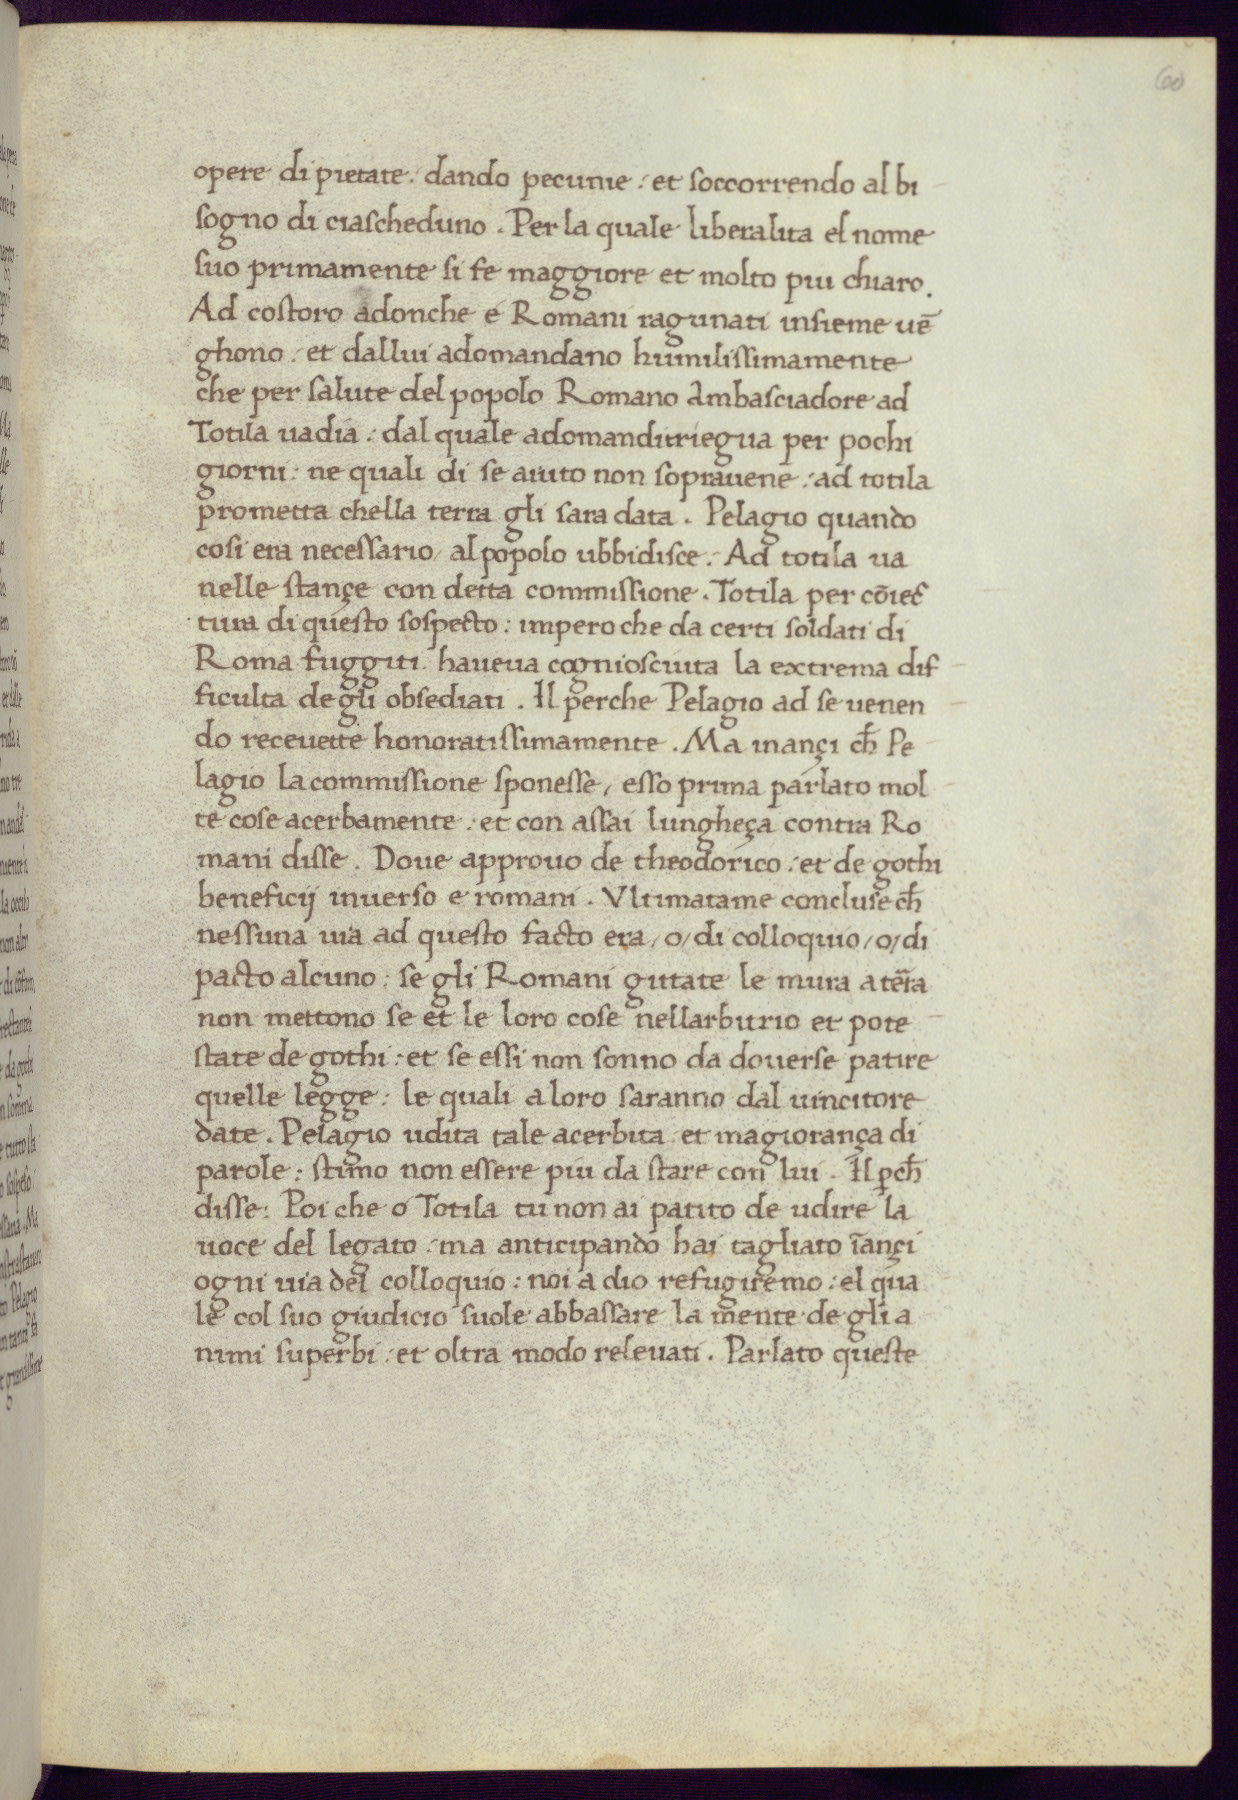 60
opere di pietate : dando pecunie : et soccorrendo al bi
sogno di ciascheduno . Per la quale liberalita el nome
suo primamente si fe maggiore et molto piu chiaro .
Ad costoro adonche e Romani ragunati insieme uē
ghono : et dallui adomandano humilissimamente
che per salute del popolo Romano Ambasciadore ad
Totila uadia : dal quale adomandi triegua per pochi
giorni : ne quali di se aiuto non soprauene : ad totila
prometta chella terra gli sara data . Pelagio quando
cosi era necessario / al popolo ubbidisce . Ad totila ua
nelle stançe con detta commissione . Totila per cōiec
tura di questo sospecto : impero che da certi soldati di
Roma fuggiti haueua cogniosciuta la extrema dif
ficulta de gli obsediati . Il perche Pelagio ad se uenen
do receuette honoratissimamente . Ma inançi ch̄ Pe
lagio la commissione sponesse / esso prima parlato mol
te cose acerbamente : et con assai lungheça contra Ro
mani disse . Doue approuo de theodorico : et de gothi
beneficij inuerso e romani . Vltimatame concluse ch̄
nessuna uia ad questo facto era / o / di colloquio / o / di
pacto alcuno : se gli Romani gittate le mura a tēra
non mettono se et le loro cose nellarbitrio et pote
state de gothi : et se essi non sonno da douerse patire
quelle legge : le quali a loro saranno dal uincitore
date . Pelagio udita tale acerbita et magiorança di
parole : stimo non essere piu da stare con lui . Il ꝑch̄
disse : Poi che o Totila tu non ai patito de udire la
uoce del legato : ma anticipando hai tagliato īançi
ogni uia del colloquio : noi a dio refugiremo : el qua
le col suo giudicio suole abbassare la mente de gli a
nimi superbi : et oltra modo releuati . Parlato queste